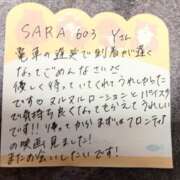 SARA 603 Yさん
電車の遅延で到着が遅く
なってごめんなさい
優しく待っていてくれてうれしかったです
ヌルヌルローションとパイズリ
で気持ち良くなってもらえてうれしい
です!! 帰ってからまずはフロンティア
の映画見ました!
またお会いしたいです!